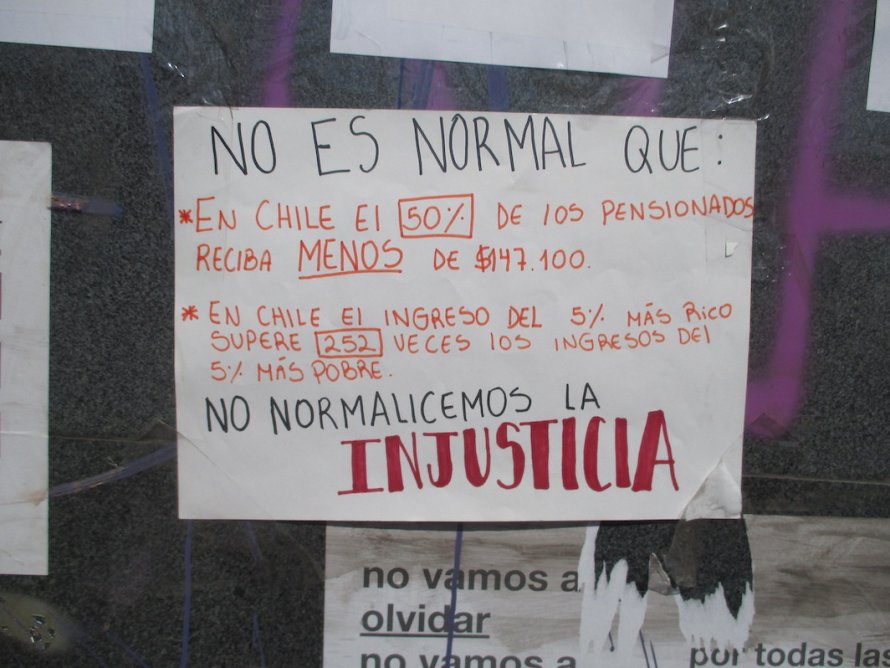 NO ES NORMAL QUE:
*EN CHILE El 50% DE lOS PENSIONADOS
RECIBA MENOS DE $147.100.
* EN CHILE El INGRESO DEL 5% MÁS RICO
SUPERE 252 VECES lOS INGRESOS DEl
5% MÁS POBRE.
NO NORMALICEMOS LA
INJUSTICIA
no vamos a
olvidar
no vamos a
por todas las